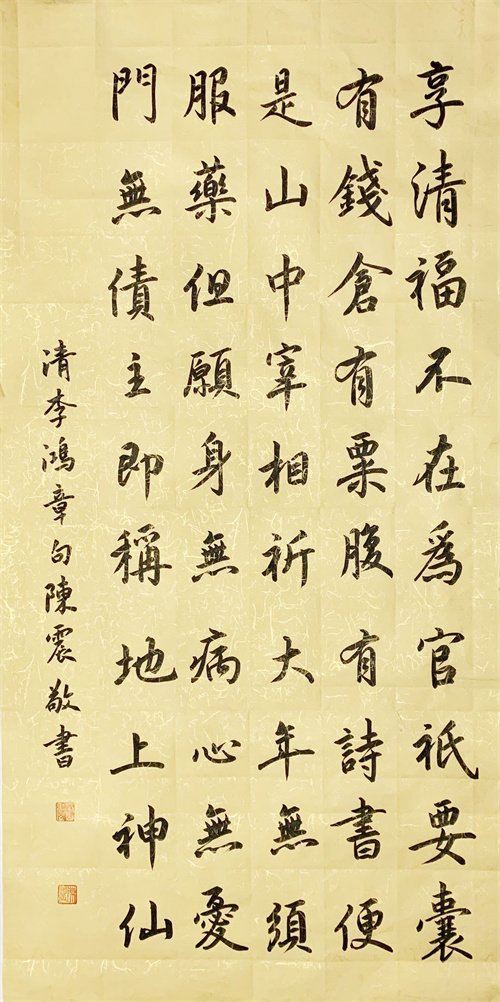 享清福不在爲官祇要囊
有錢倉有粟腹有詩書便
是山中宰相祈大年無須
服藥但願身無病心無憂
門無債主即稱地上神仙
清李鴻章句陳震敬書